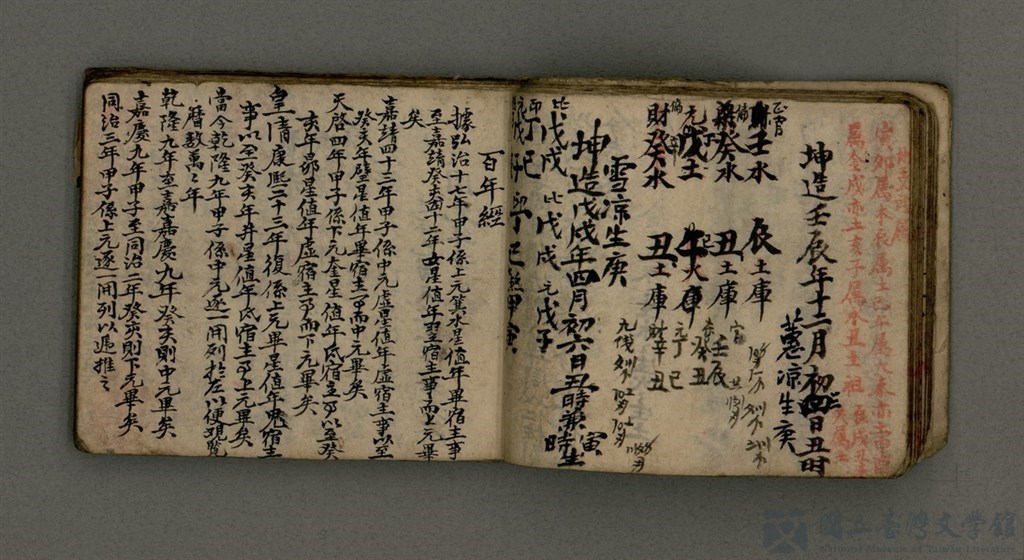 寅卯屬木辰屬土巳午屬火未亦土申酉
屬金戌亦土亥子屬水丑土
坤造壬辰年十二月初四日丑時
蕙凉生庚
壬水 辰土庫
癸水 丑土庫 壬辰
戊土 午火庫 癸丑
財癸水 丑土庫 財辛丑
元丁巳
雪凉生庚
坤造戊戌年四月初六日丑時兼寅時生
比戊戌 比戊戌 元戊子
印丁巳
百年經
據弘治十七年甲子係上元箕水星值年畢宿主事
至嘉靖癸亥四十二年女星值年翌宿主事而上元畢
矣
嘉靖四十三年甲子係中元虛星值年虛宿主事以至
癸亥年壁星值年畢宿主事而中元畢矣
天啓四年甲子係下元奎星值年氐宿主事以至癸
亥年昴星值年虛宿主事而下元畢矣
皇清康熙二十三年復係上元畢星值年鬼宿主
事以至癸亥年井星值年氐宿主事上元畢矣
當今乾隆九年甲子係中元逐一開列於左以便現覽
曆數萬々年
乾隆九年至嘉慶九年癸亥則中元畢矣
嘉慶九年甲子至同治二年癸亥則下元畢矣
同治三年甲子係上元逐一開列以遞推之
國立臺灣文學館
National Museum of Taiwan Literature